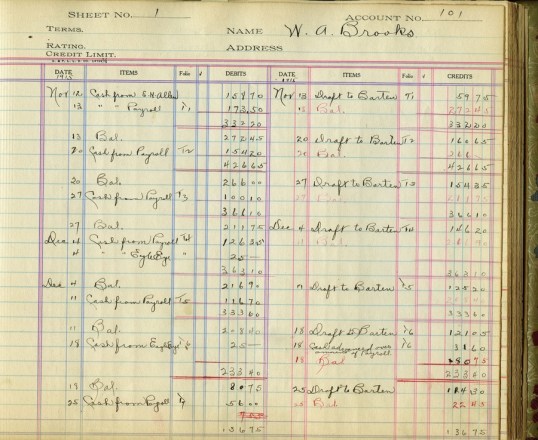 SHEET NO. 1 ACCOUNT NO. 101
TERMS. NAME W. A. Brooks
RATING. ADDRESS
CREDIT LIMIT.
DATE 1915 ITEMS Folio √ DEBITS DATE 1915 ITEMS Folio √ CREDITS
Nov 12 Cash from 158 70 Nov 13 Draft to Barten 59 75
13 " " Payroll 173 50 13 Bal. 272 45
332 20 332 20
13 Bal. 272 45 20 Draft to Barten 160 65
20 Cash from Payroll 154 20 20 Bal.
426 65 426 65
20 Bal. 266 00 27 Draft to Barten 154 35
27 Cash from Payroll 100 10
366 10 366 10
27 Bal. 211 75 Dec 4 Draft to Barten 146 20
Dec 4 Cash from Payroll 126 35
4 " " EagleEye " 25 —
363 10 363 10
Dec 4 Bal. 216 90 11 Draft to Barten 125 20
11 Cash from Payroll 116 70
333 60 333 60
11 Bal. 208 40 18 Draft to Barten 121 05
18 Cash from EagleEye 25 — 18 Cash advanced over 31 60
of Payroll
18 Bal 80 75
233 40 233 40
18 Bal. 80 75 25 Draft to Barten 114 30
25 Cash from Payroll 56 00 25 Bal 22 45
136 75 136 75